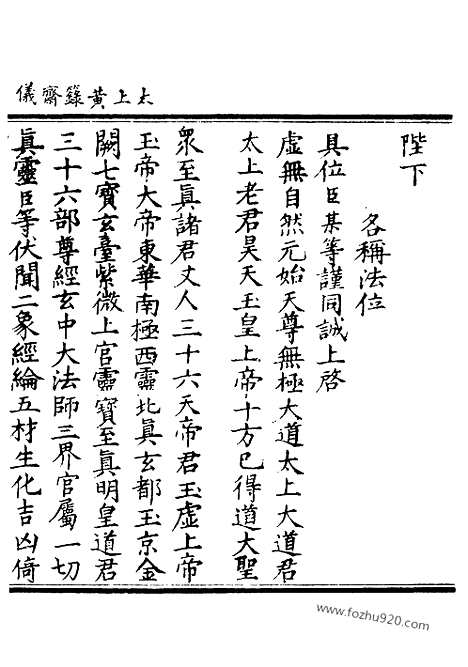 太上黃籙齋儀
陛下
各稱法位
具位臣某等謹同誠上啓
虛無自然元始天尊無極大道太上大道君
太上老君昊天玉皇上帝十方已得道大聖
衆至眞諸君丈人三十六天帝君玉虛上帝
玉帝大帝東華南極西靈北眞玄都玉京金
闕七寶玄臺紫微上官靈寶至眞明皇道君
三十六部尊經玄中大法師三界官屬一切
眞靈臣等伏聞二象經綸五材生化吉凶倚
www.fozhu920.com